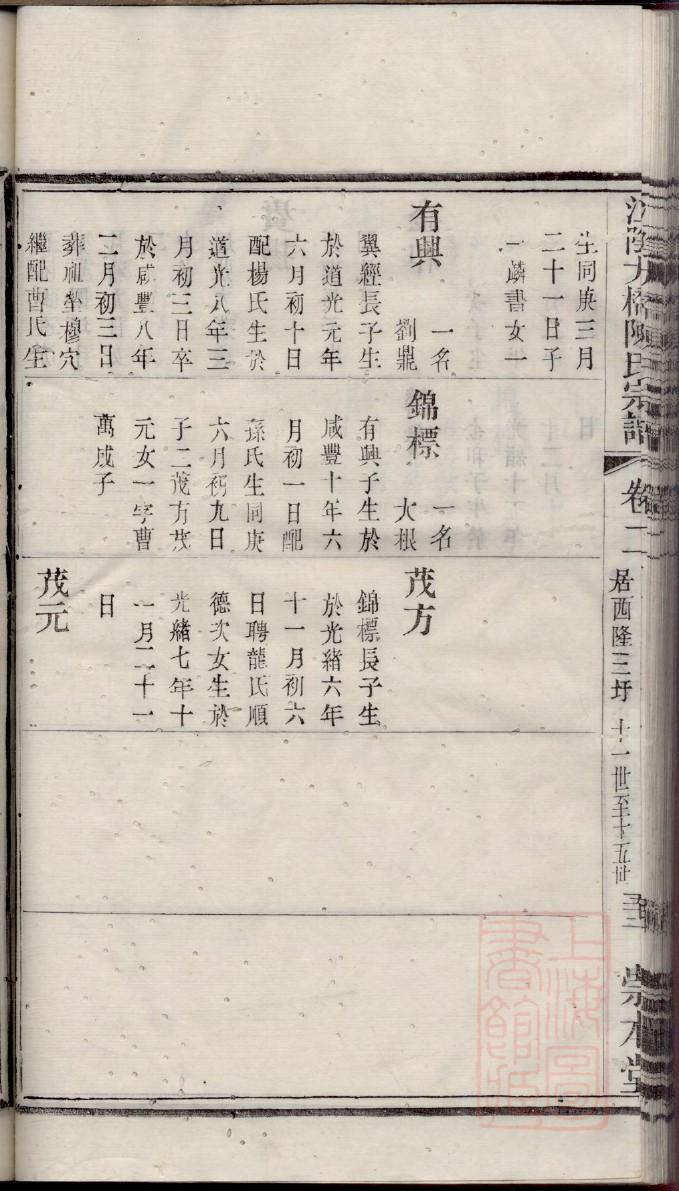 江陰大橋陳氏宗譜
卷二
居西隆三圩
十一世至十五世
崇本堂
生同庚三月
二十一日子
一麟書女一
有興
一名
劉鼎
翼經長子生
於道光元年
六月初十日
配楊氏生於
道光八年三
月初三日卒
於咸豐八年
二月初三日
葬祖塋穆穴
繼配曹氏生
錦標
一名
大根
有興子生於
咸豐十年六
月初一日配
孫氏生同庚
六月初九日
子二茂方茂
元女一字曹
萬成子
茂方
錦標長子生
於光緒六年
十一月初六
日聘龍氏順
德次女生於
光緒七年十
一月二十一
日
茂元
上海圖
書館藏